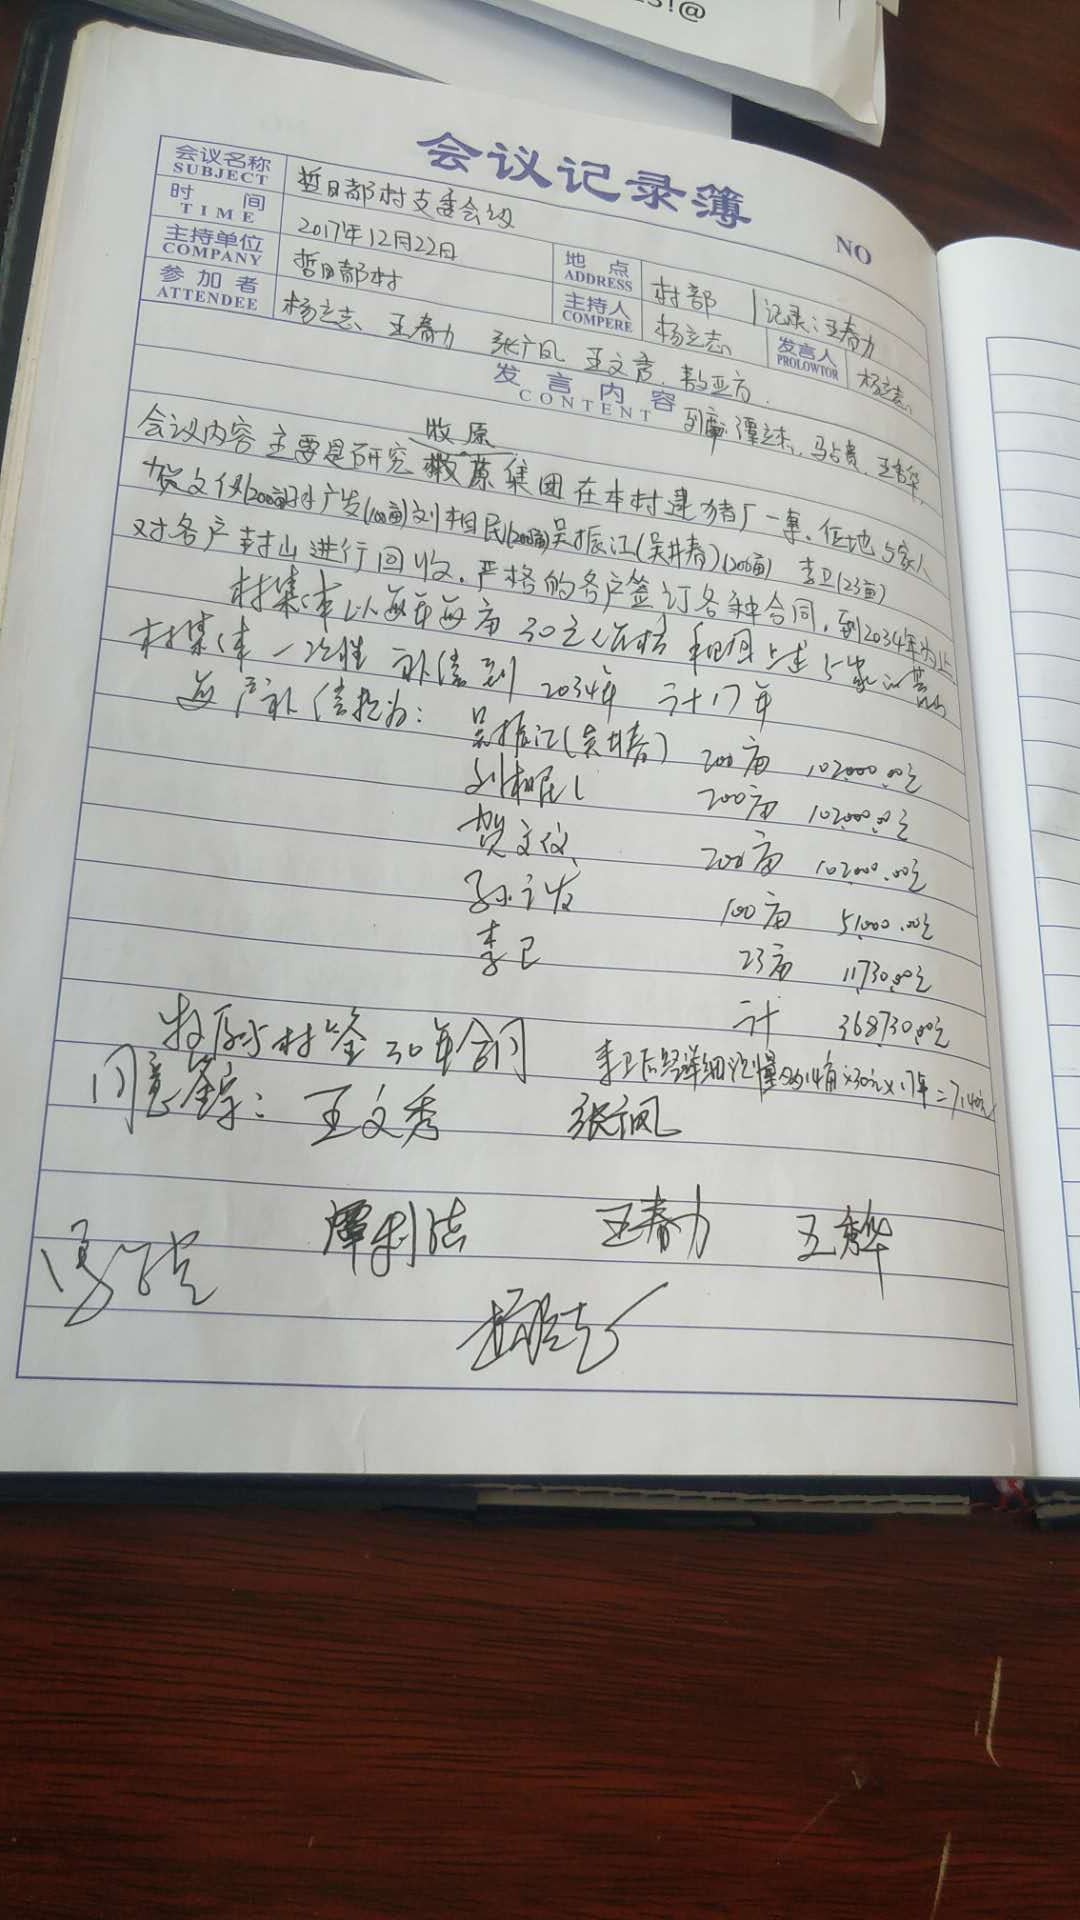 会议记录簿
NO
会议名称 SUBJECT 哲日都村支委会议
时间 TIME 2017年12月22日 地点 ADDRESS 村部 记录：王春力
主持单位 COMPANY 哲日都村 主持人 COMPERE 杨立志 发言人 PROLOWTOR 杨立志
参加者 ATTENDEE 杨立志、王春力 张广凤 王文彦
发言内容 CONTENT 谭立杰、马占贵、王秀华
牧原
会议内容主要是研究 集团在本村建猪厂一事，征地5家人
贺文仪(200亩)孙广发(100亩)刘相民(200亩)吴振江(吴井春)(200亩) 李卫(23亩)
对各户封山进行回收，严格的各户签订各种合同，到2034年为止
村集体以每年每亩30元 上述5家
村集体一次性补偿到2034年 计17年
每户补偿款为：吴振江(吴井春) 200亩 102000.00元
刘相民 200亩 102000.00元
贺文仪 200亩 102000.00元
孙广发 100亩 51000.00元
李卫 23亩 11730.00元
计 368730.00元
牧原与村签30年合同
李卫后经详细 14亩×30元×17年=7140元
同意签字：王文秀 张广凤
谭利杰 王春力 王秀华
马占贵
杨立志